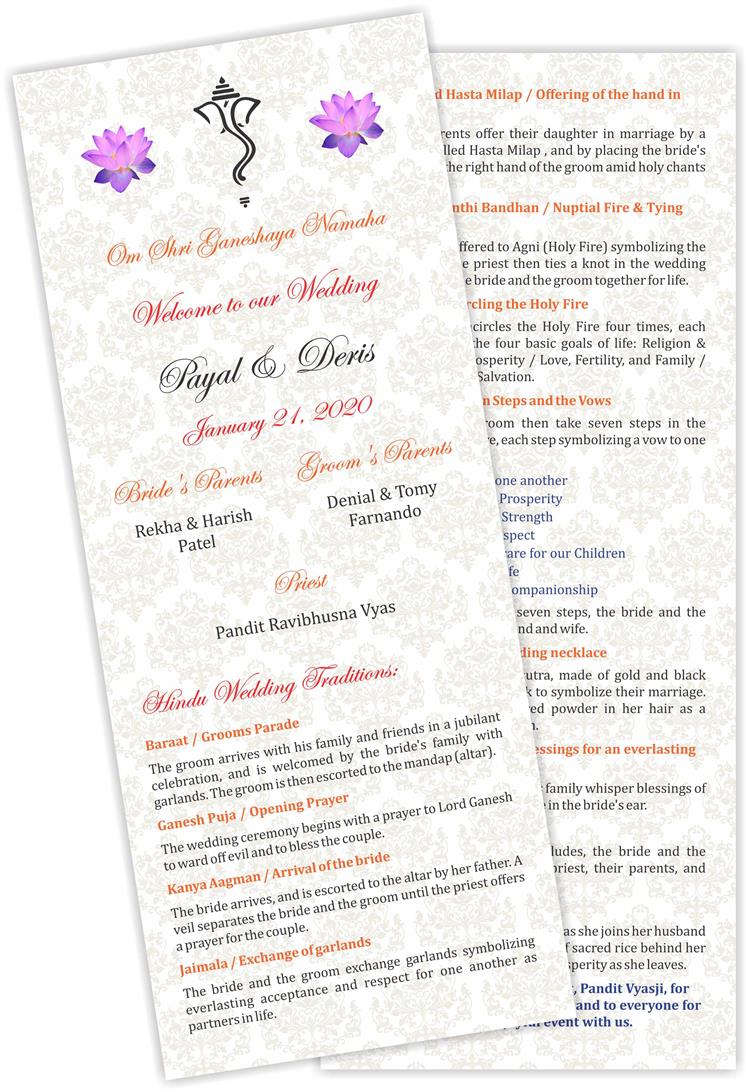 Om Shri Ganeshaya Namaha
Welcome to our Wedding
Payal & Deris
January 21, 2020
Bride's Parents
Rekha & Harish
Patel
Groom's Parents
Denial & Tomy
Farnando
Priest
Pandit Ravibhusna Vyas
Hindu Wedding Traditions:
Baraat / Grooms Parade
The groom arrives with his family and friends in a jubilant
celebration, and is welcomed by the bride's family with
garlands. The groom is then escorted to the mandap (altar).
Ganesh Puja / Opening Prayer
The wedding ceremony begins with a prayer to Lord Ganesh
to ward off evil and to bless the couple.
Kanya Aagman / Arrival of the bride
The bride arrives, and is escorted to the altar by her father. A
veil separates the bride and the groom until the priest offers
a prayer for the couple.
Jaimala / Exchange of garlands
The bride and the groom exchange garlands symbolizing
everlasting acceptance and respect for one another as
partners in life.
Hasta Milap / Offering of the hand in
offer their daughter in marriage by a
Hasta Milap , and by placing the bride's
the right hand of the groom amid holy chants
Bandhan / Nuptial Fire & Tying
to Agni (Holy Fire) symbolizing the
priest then ties a knot in the wedding
bride and the groom together for life.
the Holy Fire
the Holy Fire four times, each
the four basic goals of life: Religion &
/ Love, Fertility, and Family /
Salvation.
Steps and the Vows
then take seven steps in the
each step symbolizing a vow to one
one another
Prosperity
Strength
for our Children
seven steps, the bride and the
and wife.
necklace
made of gold and black
to symbolize their marriage.
powder in her hair as a
for an everlasting
family whisper blessings of
in the bride's ear.
the bride and the
their parents, and
as she joins her husband
sacred rice behind her
as she leaves.
, Pandit Vyasji, for
and to everyone for
event with us.